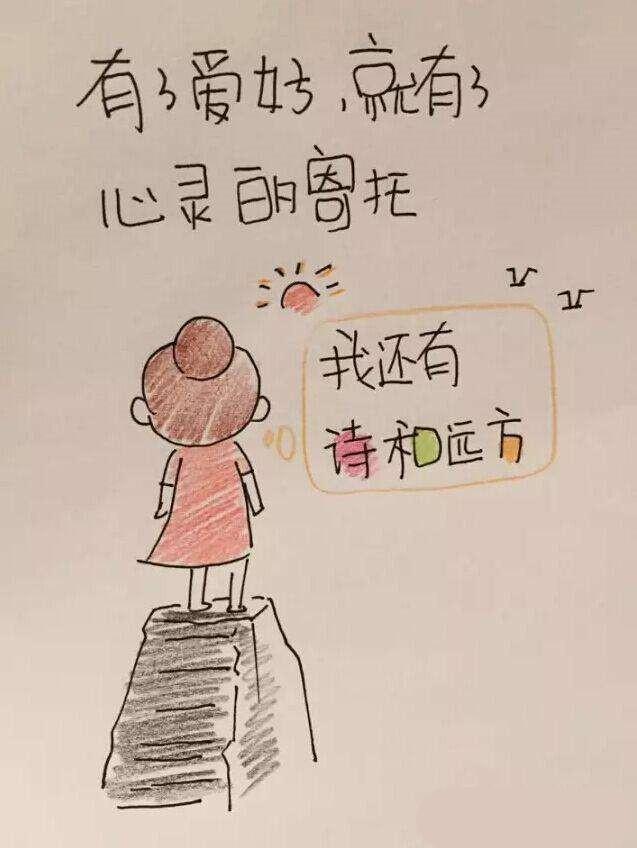 有了爱好，就有了
心灵的寄托
我还有
诗和远方